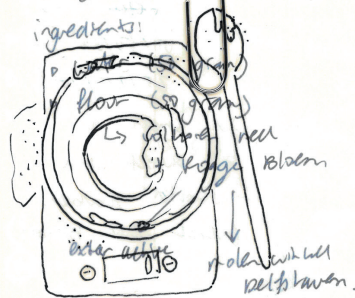 ingredients:
water (50 gram)
flour (50 gram)
↳ volkoren meel
+ Rogge Bloem
extra active
molenwinkel
Delfshaven.